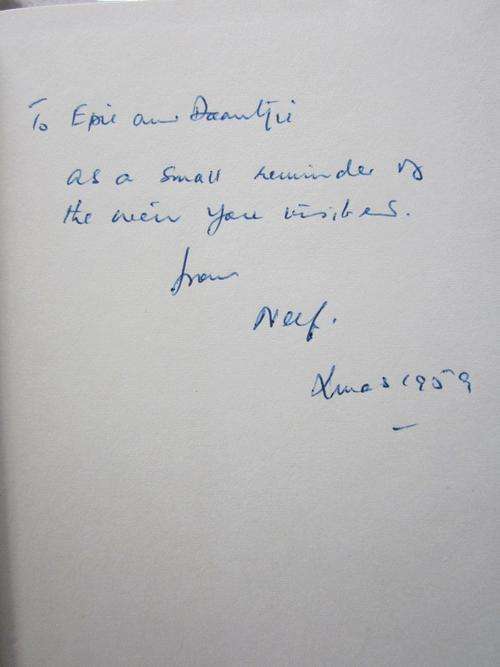 To Epie and Daantjie
as a small reminder of
the men you visited.
from
Neef.
Xmas 1959